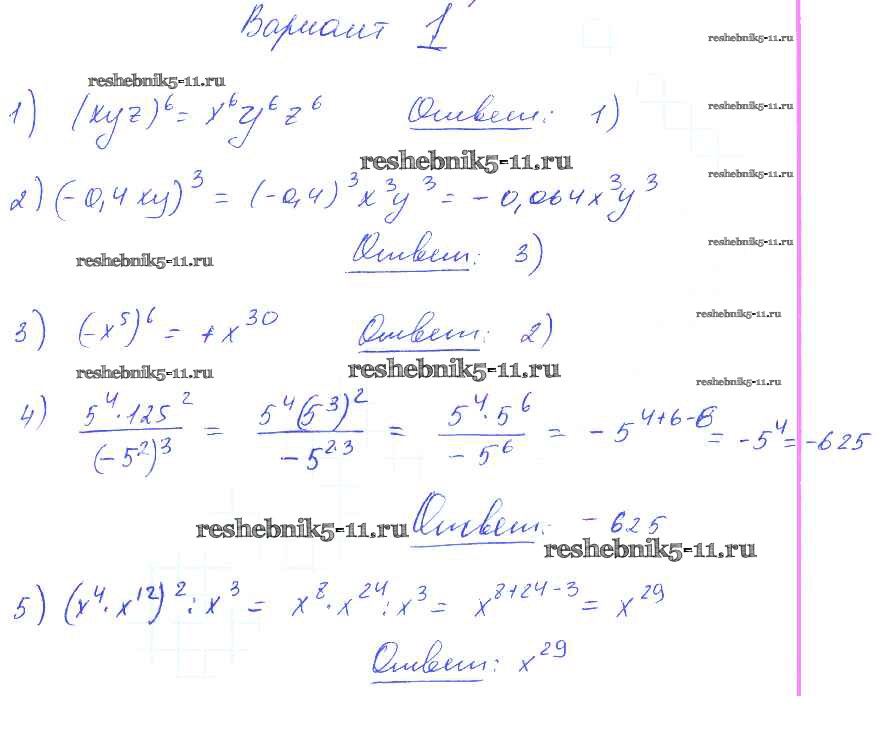 Вариант 1
reshebnik5-11.ru
reshebnik5-11.ru
1) (xyz)⁶ = x⁶y⁶z⁶ Ответ: 1)
reshebnik5-11.ru
reshebnik5-11.ru
reshebnik5-11.ru
2) (-0,4xy)³ = (-0,4)³x³y³ = -0,064x³y³
reshebnik5-11.ru
Ответ: 3)
reshebnik5-11.ru
reshebnik5-11.ru
3) (-x⁵)⁶ = +x³⁰ Ответ: 2)
reshebnik5-11.ru
reshebnik5-11.ru
reshebnik5-11.ru
4) 5⁴·125²/(-5²)³ = 5⁴(5³)²/-5²·³ = 5⁴·5⁶/-5⁶ = -5⁴⁺⁶⁻⁶ = -5⁴ = -625
reshebnik5-11.ru Ответ: -625
reshebnik5-11.ru
5) (x⁴·x¹²)²:x³ = x⁸·x²⁴:x³ = x⁸⁺²⁴⁻³ = x²⁹
Ответ: x²⁹